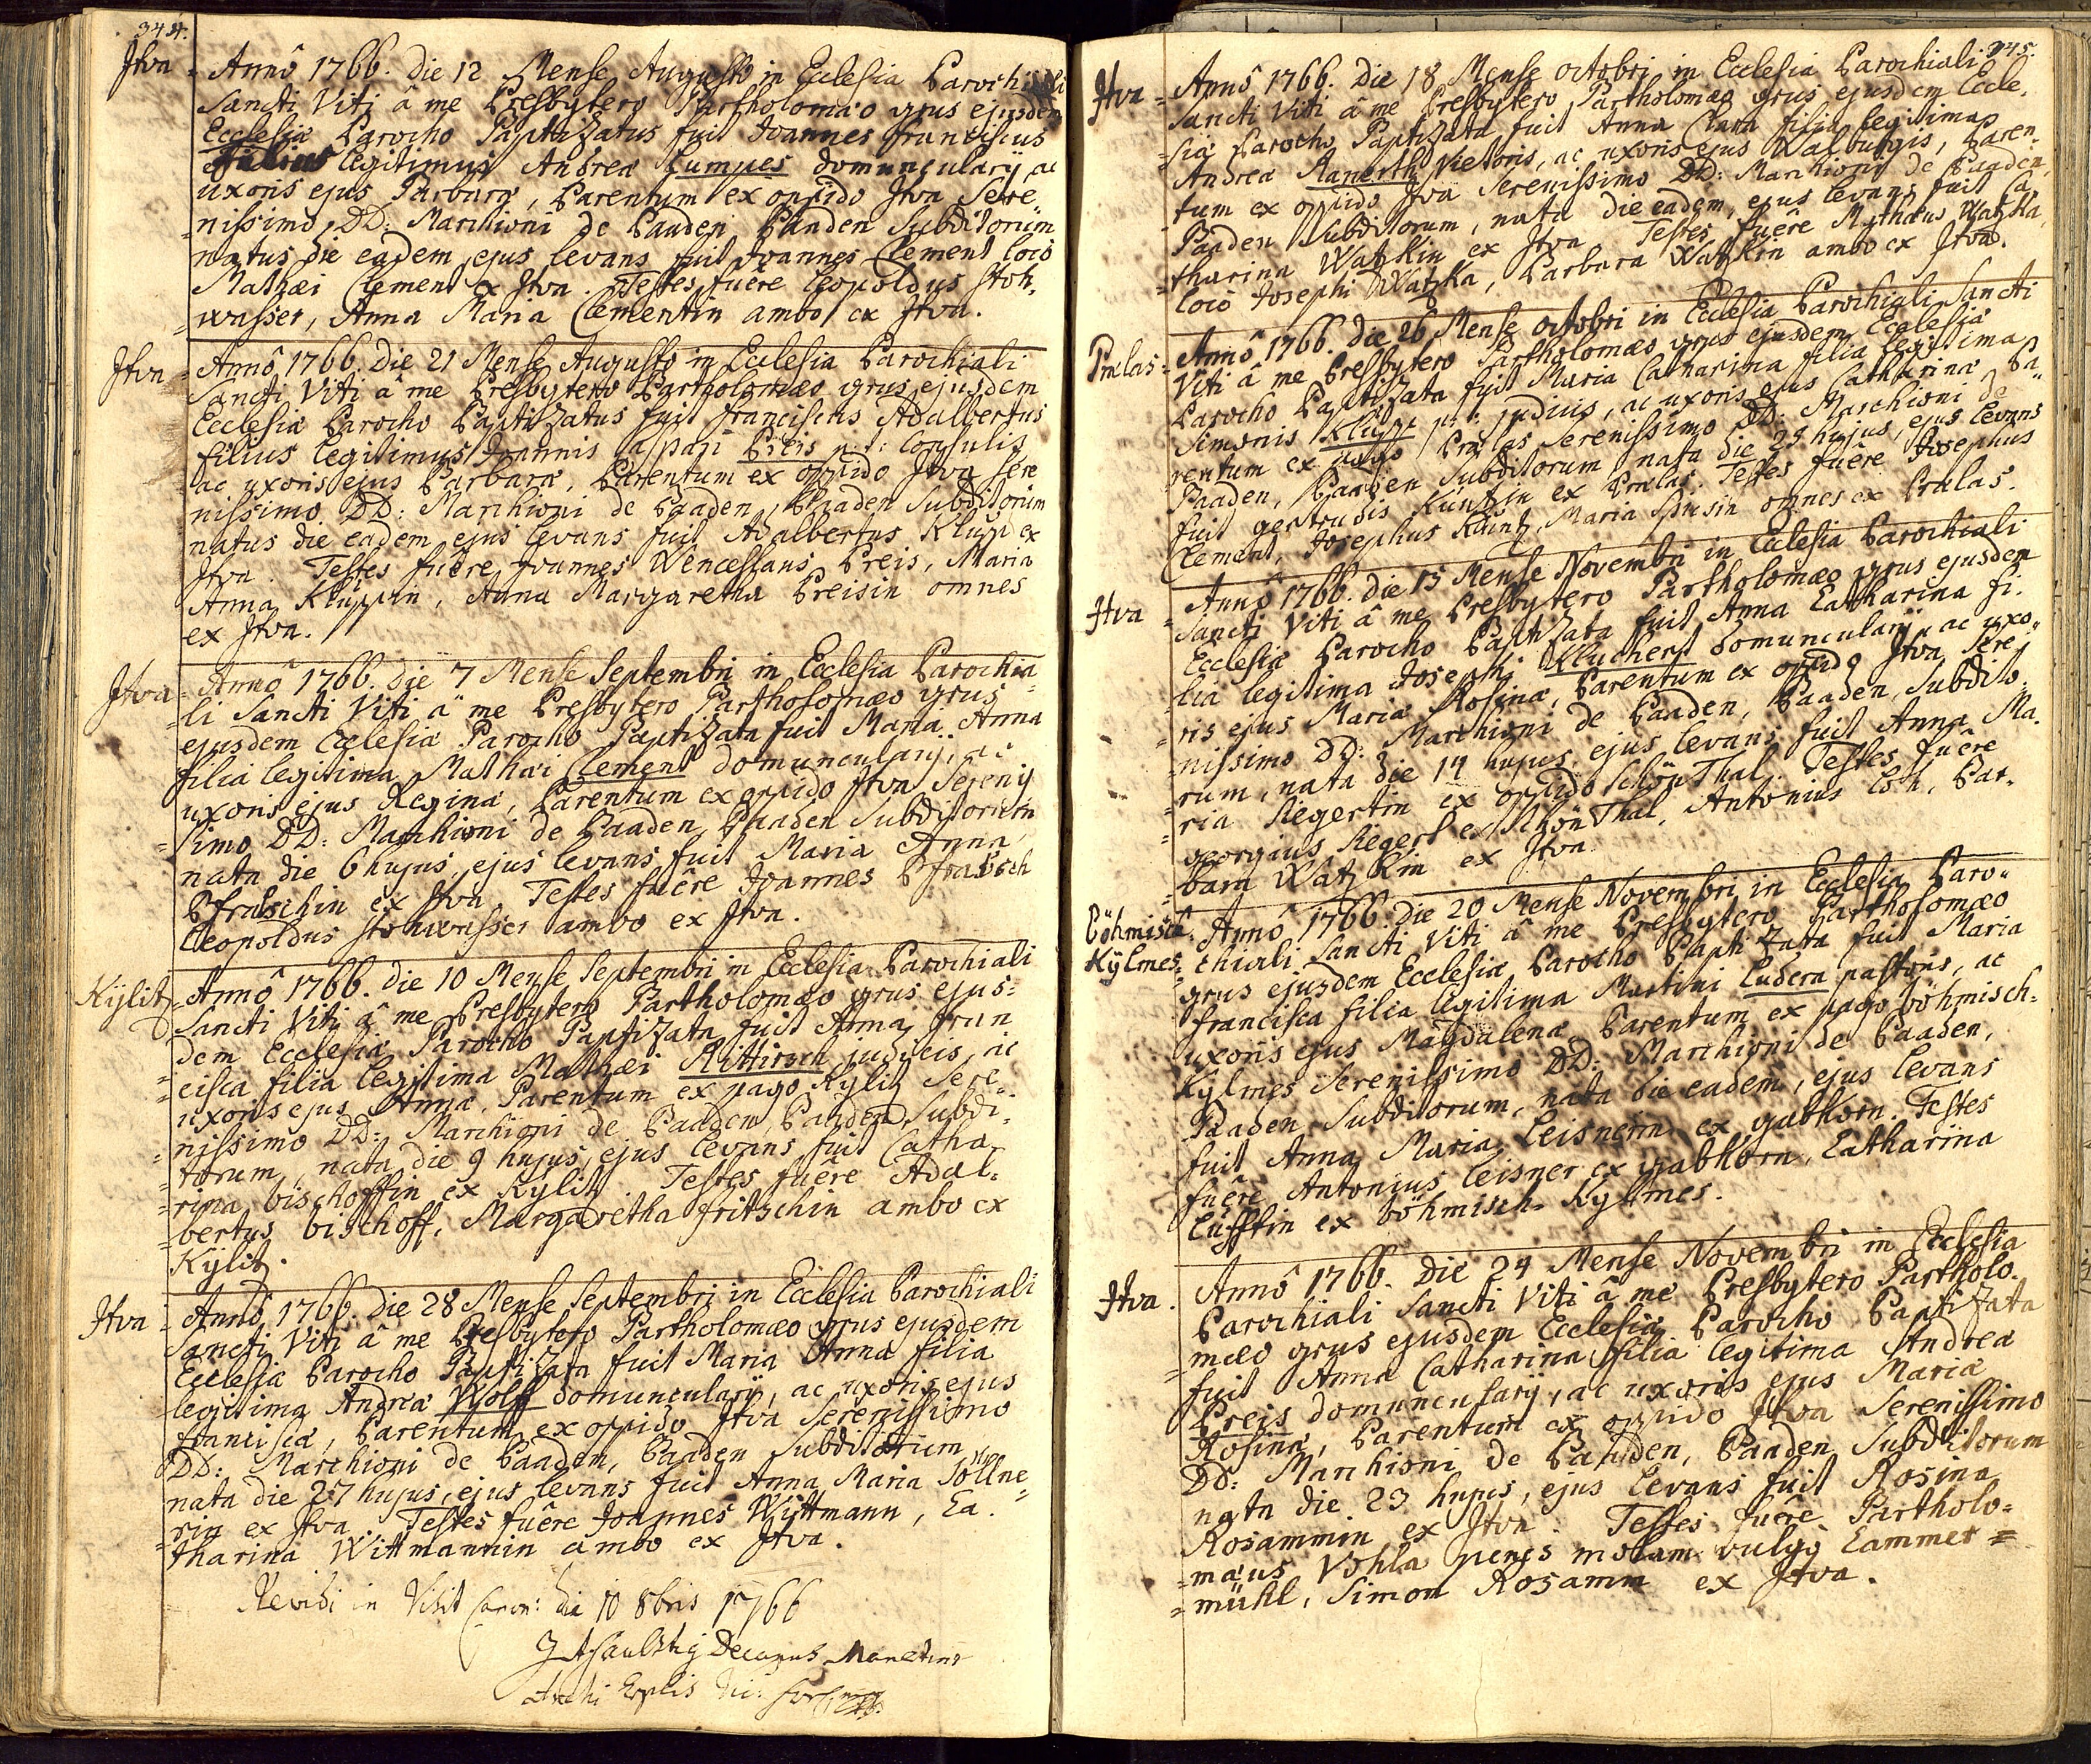 344.
Jtva = Annô 1766. die 12 Mense Augusto in Ecclesia Parochiali
Sancti Viti â me Presbytero Partholomæo grus ejusdem
Ecclesiæ Parocho Paptizatus fuit Joannes franciscus
filius legitimus Andreæ Kumpes domuncularij ac
uxoris ejus Parbaræ, Parentum ex oppido Jtva Sere=
nissimo DD: Marchioni de Paaden Paaden Subditorum
natus die eadem, ejus levans fuit Joannes Clement loco
Mathæi Clement ex Jtva. Testes fuêre leopoldus stoh=
wasser, Anna Maria Clementin ambo ex Jtva.
Jtva = Annô 1766. die 21 Mense Augusto in Ecclesia Parochiali
Sancti Viti â me Presbytero Partholomæo grus ejusdem
Ecclesiæ Parocho Paptizatus fuit franciscus Adalbertus
filius legitimus Joannis Caspari Preis p:t: Consulis
ac uxoris ejus Parbaræ, Parentum ex oppido Jtva Sere
nissimo DD: Marchioni de Paaden, Paaden Subditorum
natus die eadem, ejus levans fuit Adalbertus Klupp ex
Jtva. Testes fuêre Joannes Wenceslaus Preis, Maria
Anna Kluppin, Anna Margaretha Preisin omnes
ex Jtva.
Jtva = Annô 1766. die 7 Mense Septembri in Ecclesia Parochia
=li Sancti Viti â me Presbytero Partholomæo grus
ejusdem Ecclesiæ Parocho Paptizata fuit Maria Anna
filia legitima Mathæi Clement domuncularij, ac
uxoris ejus Reginæ, Parentum ex oppido Jtva Serenis
=simo DD: Marchioni de Paaden, Paaden Subditorum
nata die 6 hujus, ejus levans fuit Maria Anna
Pfrabschin ex Jtva. Testes fuêre Joannes Pfrabsch
leopoldus stohwasser ambo ex Jtva.
Kÿlitz = Annô 1766. die 10 Mense Septembri in Ecclesia Parochiali
Sancti Viti â me Presbytero Partholomæo grus ejus=
dem Ecclesiæ Parocho Paptizata fuit Anna fran
=cisca filia legitima Mathæi Rittirsch judicis, ac
uxoris ejus Annæ, Parentum ex pago Kÿlitz Sere=
=nissimo DD: Marchioni de Paaden, Paaden, Subdi=
=torum, nata die 9 hujus, ejus levans fuit Catha=
=rina bischoffin ex Kÿlitz. Testes fuêre Adal=
=bertus bischoff, Margaretha fritschin ambo ex
Kÿlitz.
Jtva = Annô 1766. die 28 Mense Septembri in Ecclesia Parochiali
Sancti Viti â me Presbytero Partholomæo grus ejusdem
Ecclesiæ Parocho Paptizata fuit Maria Anna filia
legitima Andreæ Wolff domuncularij, ac uxoris ejus
franciscæ, Parentum ex oppido Jtva Serenissimo
DD: Marchioni de Paaden, Paaden Subditorum
nata die 27 hujus, ejus levans fuit Anna Maria Zöllne=
rin ex Jtva. Testes fuêre Joannes Wittmann, Ca=
tharina Wittmannin ambo ex Jtva.
Revidi in Visit Canon: die 10 8bris 1766
Decanus
345.
Jtva = Annô 1766. die 18 Mense octobri in Ecclesia Parochiali
Sancti Viti â me Presbytero Partholomæo grus ejusdem Eccle=
=siæ Parocho Paptizata fuit Anna Clara filia legitima
Andreæ Ranerth Vietoris, ac uxoris ejus Walburgis, Paren=
tum ex oppido Jtva Serenissimo DD: Marchioni de Paaden,
Paaden Subditorum, nata die eadem, ejus levans fuit Ca=
=tharina Watzkin ex Jtva. Testes fuêre Mathæus Watzka,
loco Josephi Watzka, Parbara Watzkin ambo ex Jtva.
Pralas = Annô 1766. die 26 Mense octobri in Ecclesia Parochiali Sancti
Viti â me Presbytero Partholomæo grus ejusdem Ecclesiæ
Parocho Paptizata fuit Maria Catharina filia legitima
Simonis Klupp p:t: judicis, ac uxoris ejus Catharinæ, Pa=
rentum ex pago Pralas Serenissimo DD: Marchioni de
Paaden, Paaden Subditorum nata die 25 hujus, ejus levans
fuit gertrudis Kuntzin ex Pralas. Testes fuêre Josephus
Clement, Josephus Kuntz, Maria omnes ex Pralas.
Jtva = Annô 1766. die 15 Mense Novembri in Ecclesia Parochiali
Sancti Viti â me Presbytero Partholomæo grus ejusdem
Ecclesiæ Parocho Paptizata fuit Anna Catharina fi=
=lia legitima Josephi Kluchert domuncularij, ac uxo=
=ris ejus Mariæ Rosinæ, Parentum ex oppido Jtva Sere=
=nissimo DD: Marchioni de Paaden, Paaden, Subdito=
=rum, nata die 14 hujus, ejus levans fuit Anna Ma=
=ria Regertin ex oppido SchönThal. Testes fuêre
georgius Regert ex SchönThal, Antonius Loh, Par=
=bara Watzkin ex Jtva.
Pöhmisch. Annô 1766. die 20 Mense Novembri in Ecclesia Paro=
Kÿlmes = chiali Sancti Viti â me Presbytero Partholomæo
grus ejusdem Ecclesiæ Parocho Paptizata fuit Maria
francisca filia legitima Martini Ludera pastoris, ac
uxoris ejus Magdalenæ Parentum ex pago böhmisch=
Kÿlmes Serenissimo DD: Marchioni de Paaden,
Paaden Subditorum, nata die eadem, ejus levans
fuit Anna Maria leisnerin ex gabhorn. Testes
fuêre Antonius leisner ex gabhorn, Catharina
lufftin ex böhmisch-Kÿlmes.
Jtva. Annô 1766. die 24 Mense Novembri in Ecclesia
Parochiali Sancti Viti â me Presbytero Partholo=
=mæo grus ejusdem Ecclesiæ Parocho Paptizata
fuit Anna Catharina filia legitima Andreæ
Preis domuncularij, ac uxoris ejus Mariæ
Rosinæ, Parentum ex oppido Jtva Serenissimo
DD: Marchioni de Paaden, Paaden Subditorum
nata die 23 hujus, ejus levans fuit Rosina
Rosammin ex Jtva. Testes fuêre Partholo=
=mæus Vohla penes molam vulgo Cammer=
=mühl, Simon Rosamm ex Jtva.